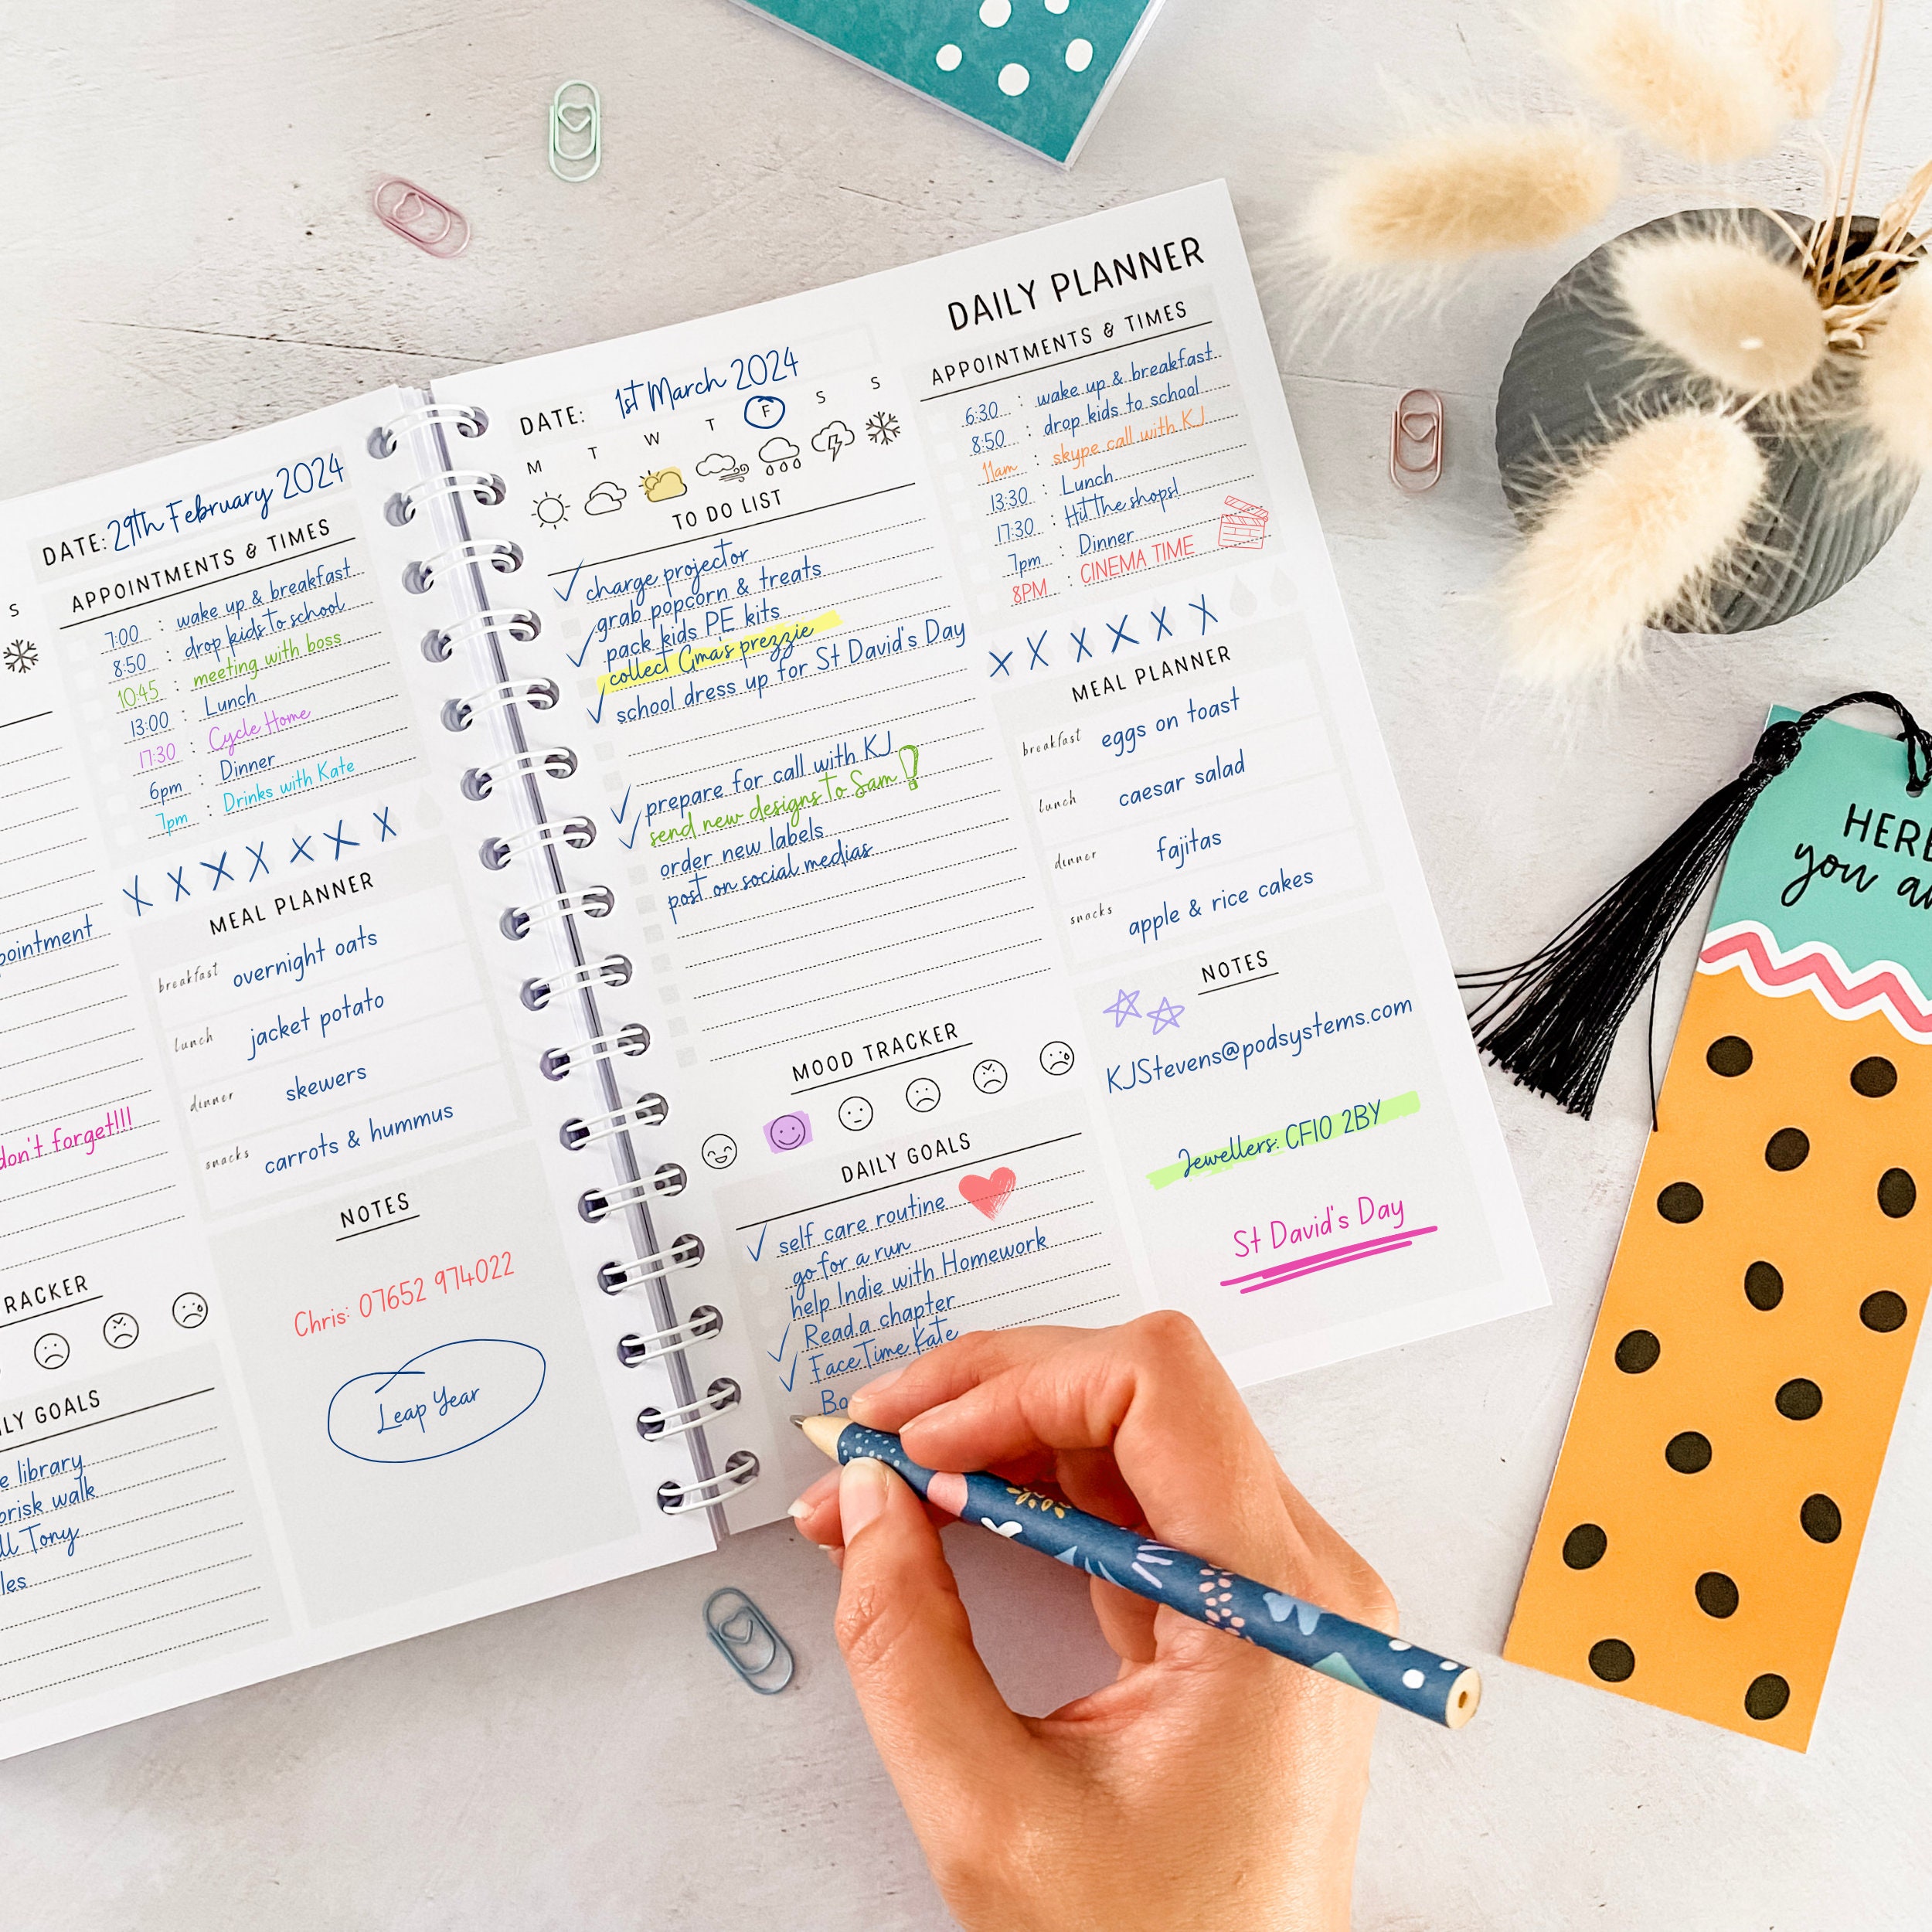 DATE: 29th February 2024
S
APPOINTMENTS & TIMES
7:00 : wake up & breakfast
8:50 : drop kids to school
10:45 : meeting with boss
13:00 : Lunch
17:30 : Cycle Home
6pm : Dinner
7pm : Drinks with Kate
X X X X X X X
MEAL PLANNER
breakfast overnight oats
lunch jacket potato
dinner skewers
snacks carrots & hummus
NOTES
Chris: 07652 974022
Leap Year
pointment
don't forget!!!
RACKER
LY GOALS
e library
brisk walk
ll Tony
les
DAILY PLANNER
DATE: 1st March 2024
M T W T F S S
TO DO LIST
charge projector
grab popcorn & treats
pack kids PE kits
collect Gma's prezzie
school dress up for St David's Day
prepare for call with KJ
send new designs to Sam!
order new labels
post on social medias
MOOD TRACKER
DAILY GOALS
self care routine
go for a run
help Indie with Homework
Read a chapter
FaceTime Kate
Bo
APPOINTMENTS & TIMES
6:30 : wake up & breakfast
8:50 : drop kids to school
11am : skype call with KJ
13:30 : Lunch
17:30 : Hit The shops!
7pm : Dinner
8PM : CINEMA TIME
X X X X X X
MEAL PLANNER
breakfast eggs on toast
lunch caesar salad
dinner fajitas
snacks apple & rice cakes
NOTES
KJStevens@podsystems.com
Jewellers: CF10 2BY
St David's Day
HERE
you a